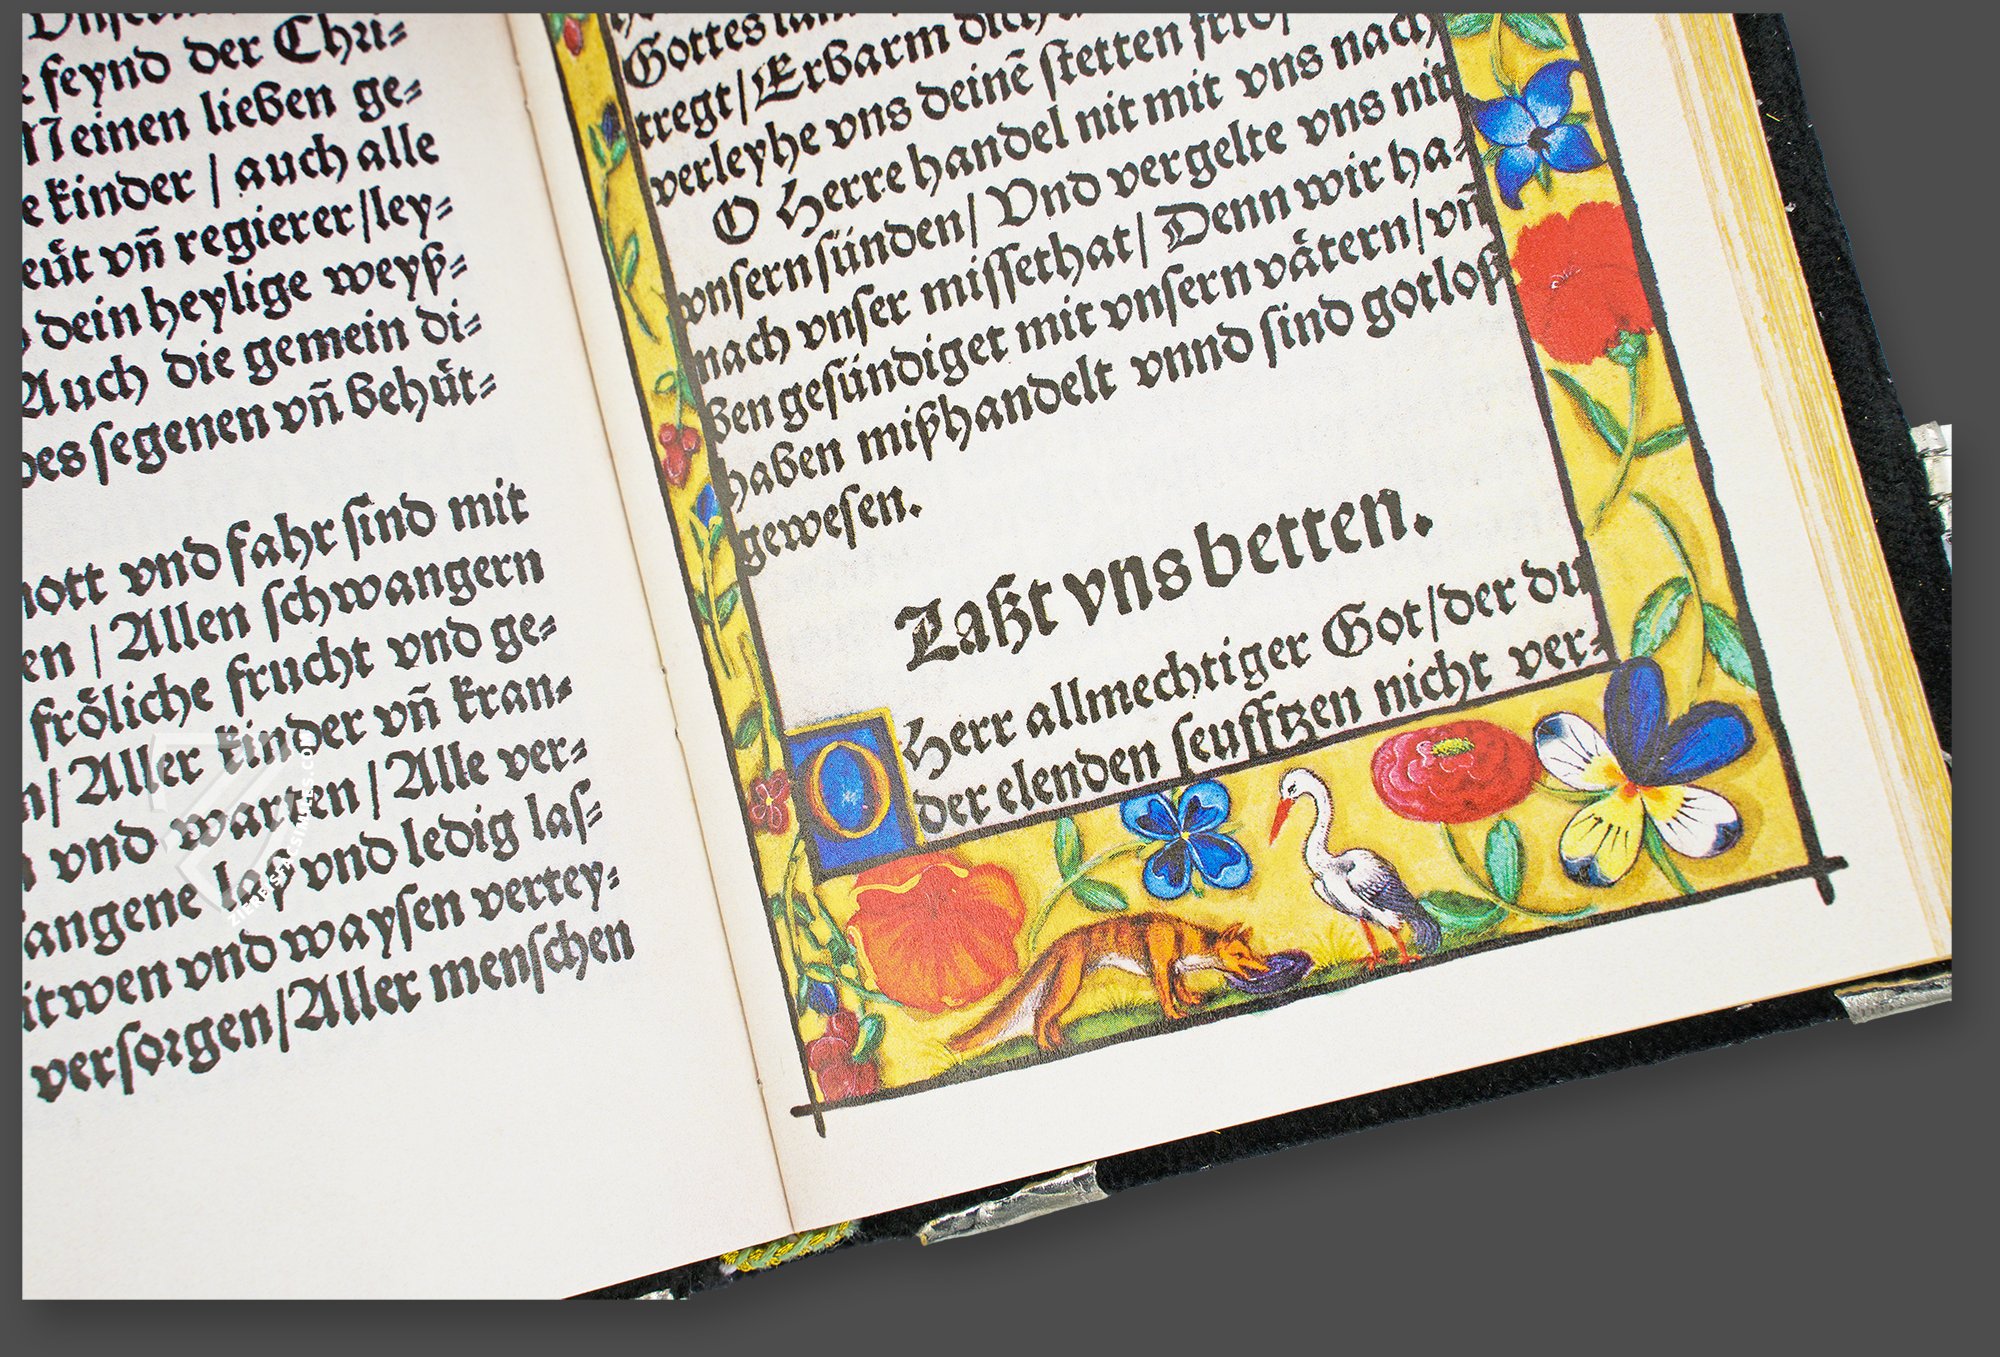 feynd der Chri⸗
Meinen lieben ge⸗
kinder / auch alle
vñ regierer/ley⸗
dein heylige weyß⸗
Auch die gemein di⸗
segenen vñ behuͤt⸗
vnd fahr sind mit
/ Allen schwangern
froͤliche frucht vnd ge⸗
/ Aller kinder vñ kran⸗
vnd warten / Alle ver⸗
laß vnd ledig las⸗
vnd waysen vertey⸗
versorgen/Aller menschen
Gottes
tregt/Erbarm dich
verleyhe vns deinē stetten
O Herre handel nit mit vns nach
vnsern sünden/ Vnd vergelte vns nit
nach vnser missethat/ Denn wir ha⸗
ben gesündiget mit vnsern vätern/vñ
haben mißhandelt vnnd sind gotloß
gewesen.
Laßt vns betten.
O Herr allmechtiger Got/der du
der elenden seufftzen nicht ver⸗
ZIEREIS FACSIMILES.CO